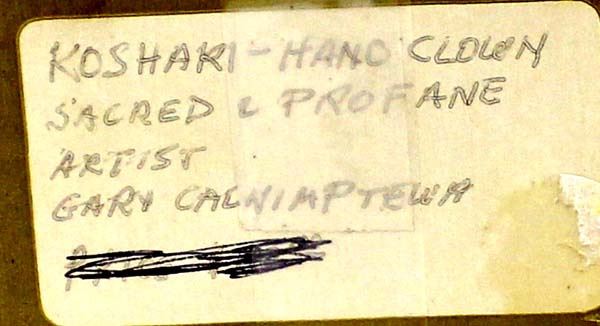 KOSHARI - HANO CLOWN
SACRED & PROFANE
ARTIST
GARY CALNIMPTEWA